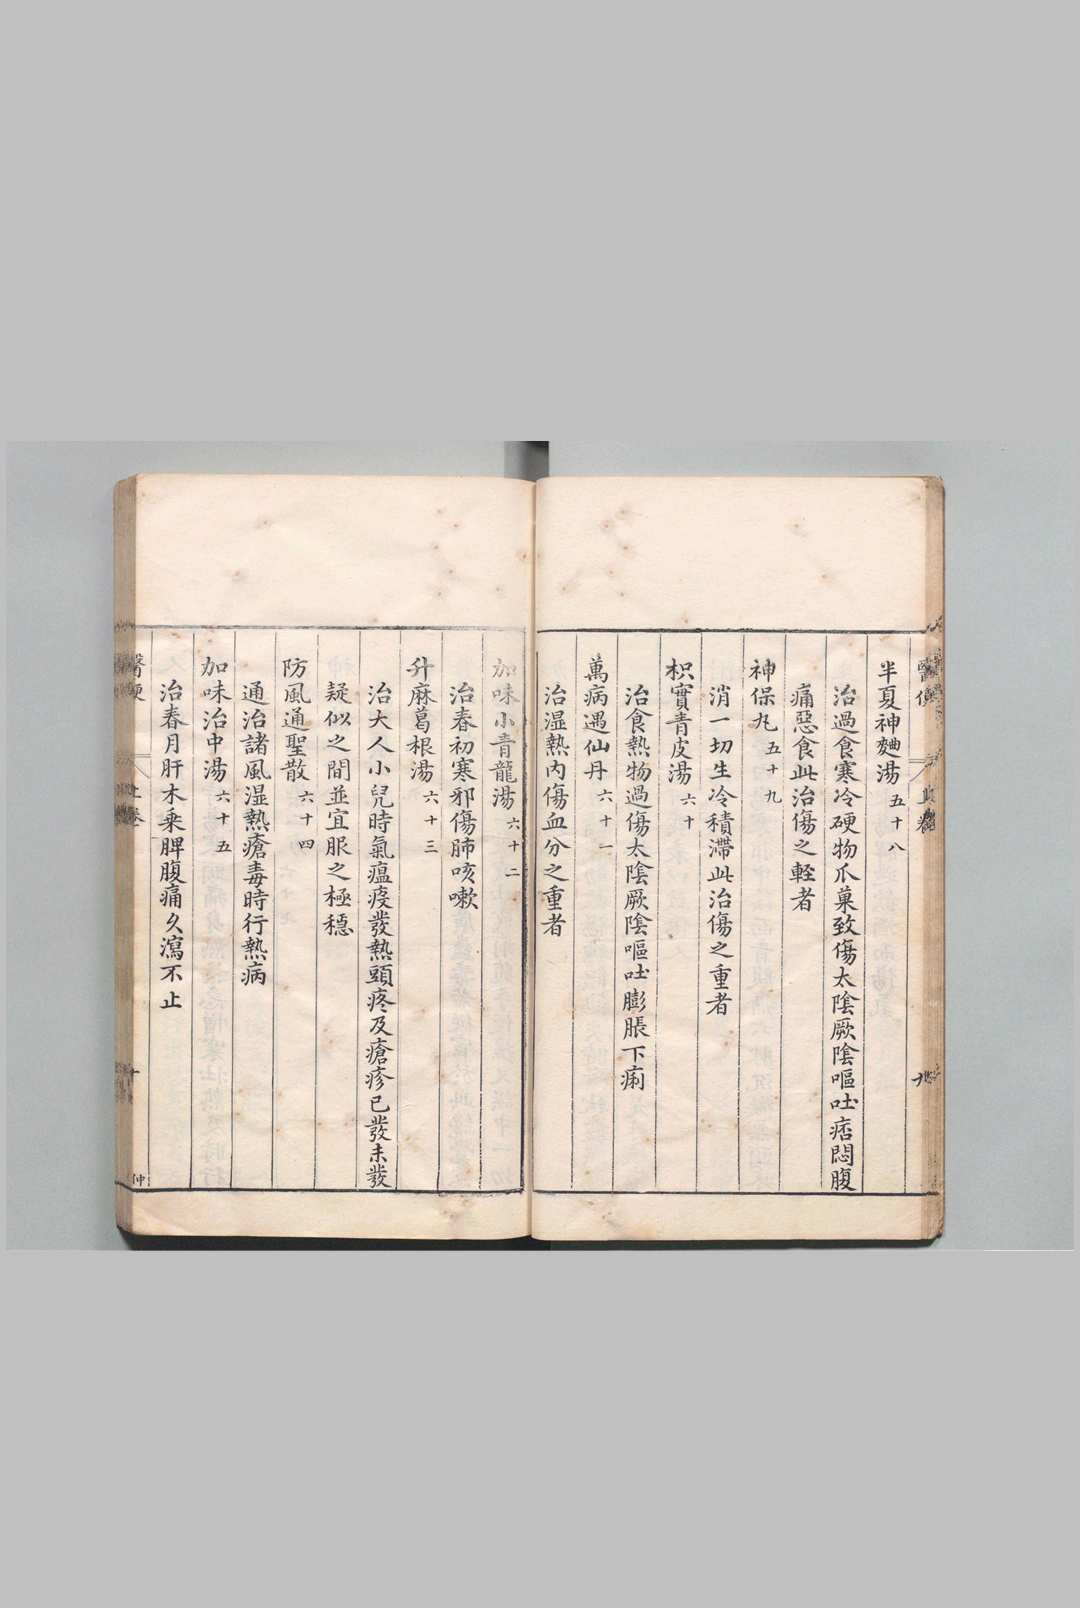 半夏神麯湯 五十八
治過食寒冷硬物爪菓致傷太陰厥陰嘔吐痞悶腹
痛惡食此治傷之輕者
神保丸 五十九
消一切生冷積滯此治傷之重者
枳實青皮湯 六十
治食熱物過傷太陰厥陰嘔吐膨脹下痢
萬病遇仙丹 六十一
治湿熱內傷血分之重者
加味小青龍湯 六十二
治春初寒邪傷肺咳嗽
升麻葛根湯 六十三
治大人小兒時氣瘟疫發熱頭疼及瘡疹已發未發
疑似之間並宜服之極穩
防風通聖散 六十四
通治諸風湿熱瘡毒時行熱病
加味治中湯 六十五
治春月肝木乗脾腹痛久瀉不止